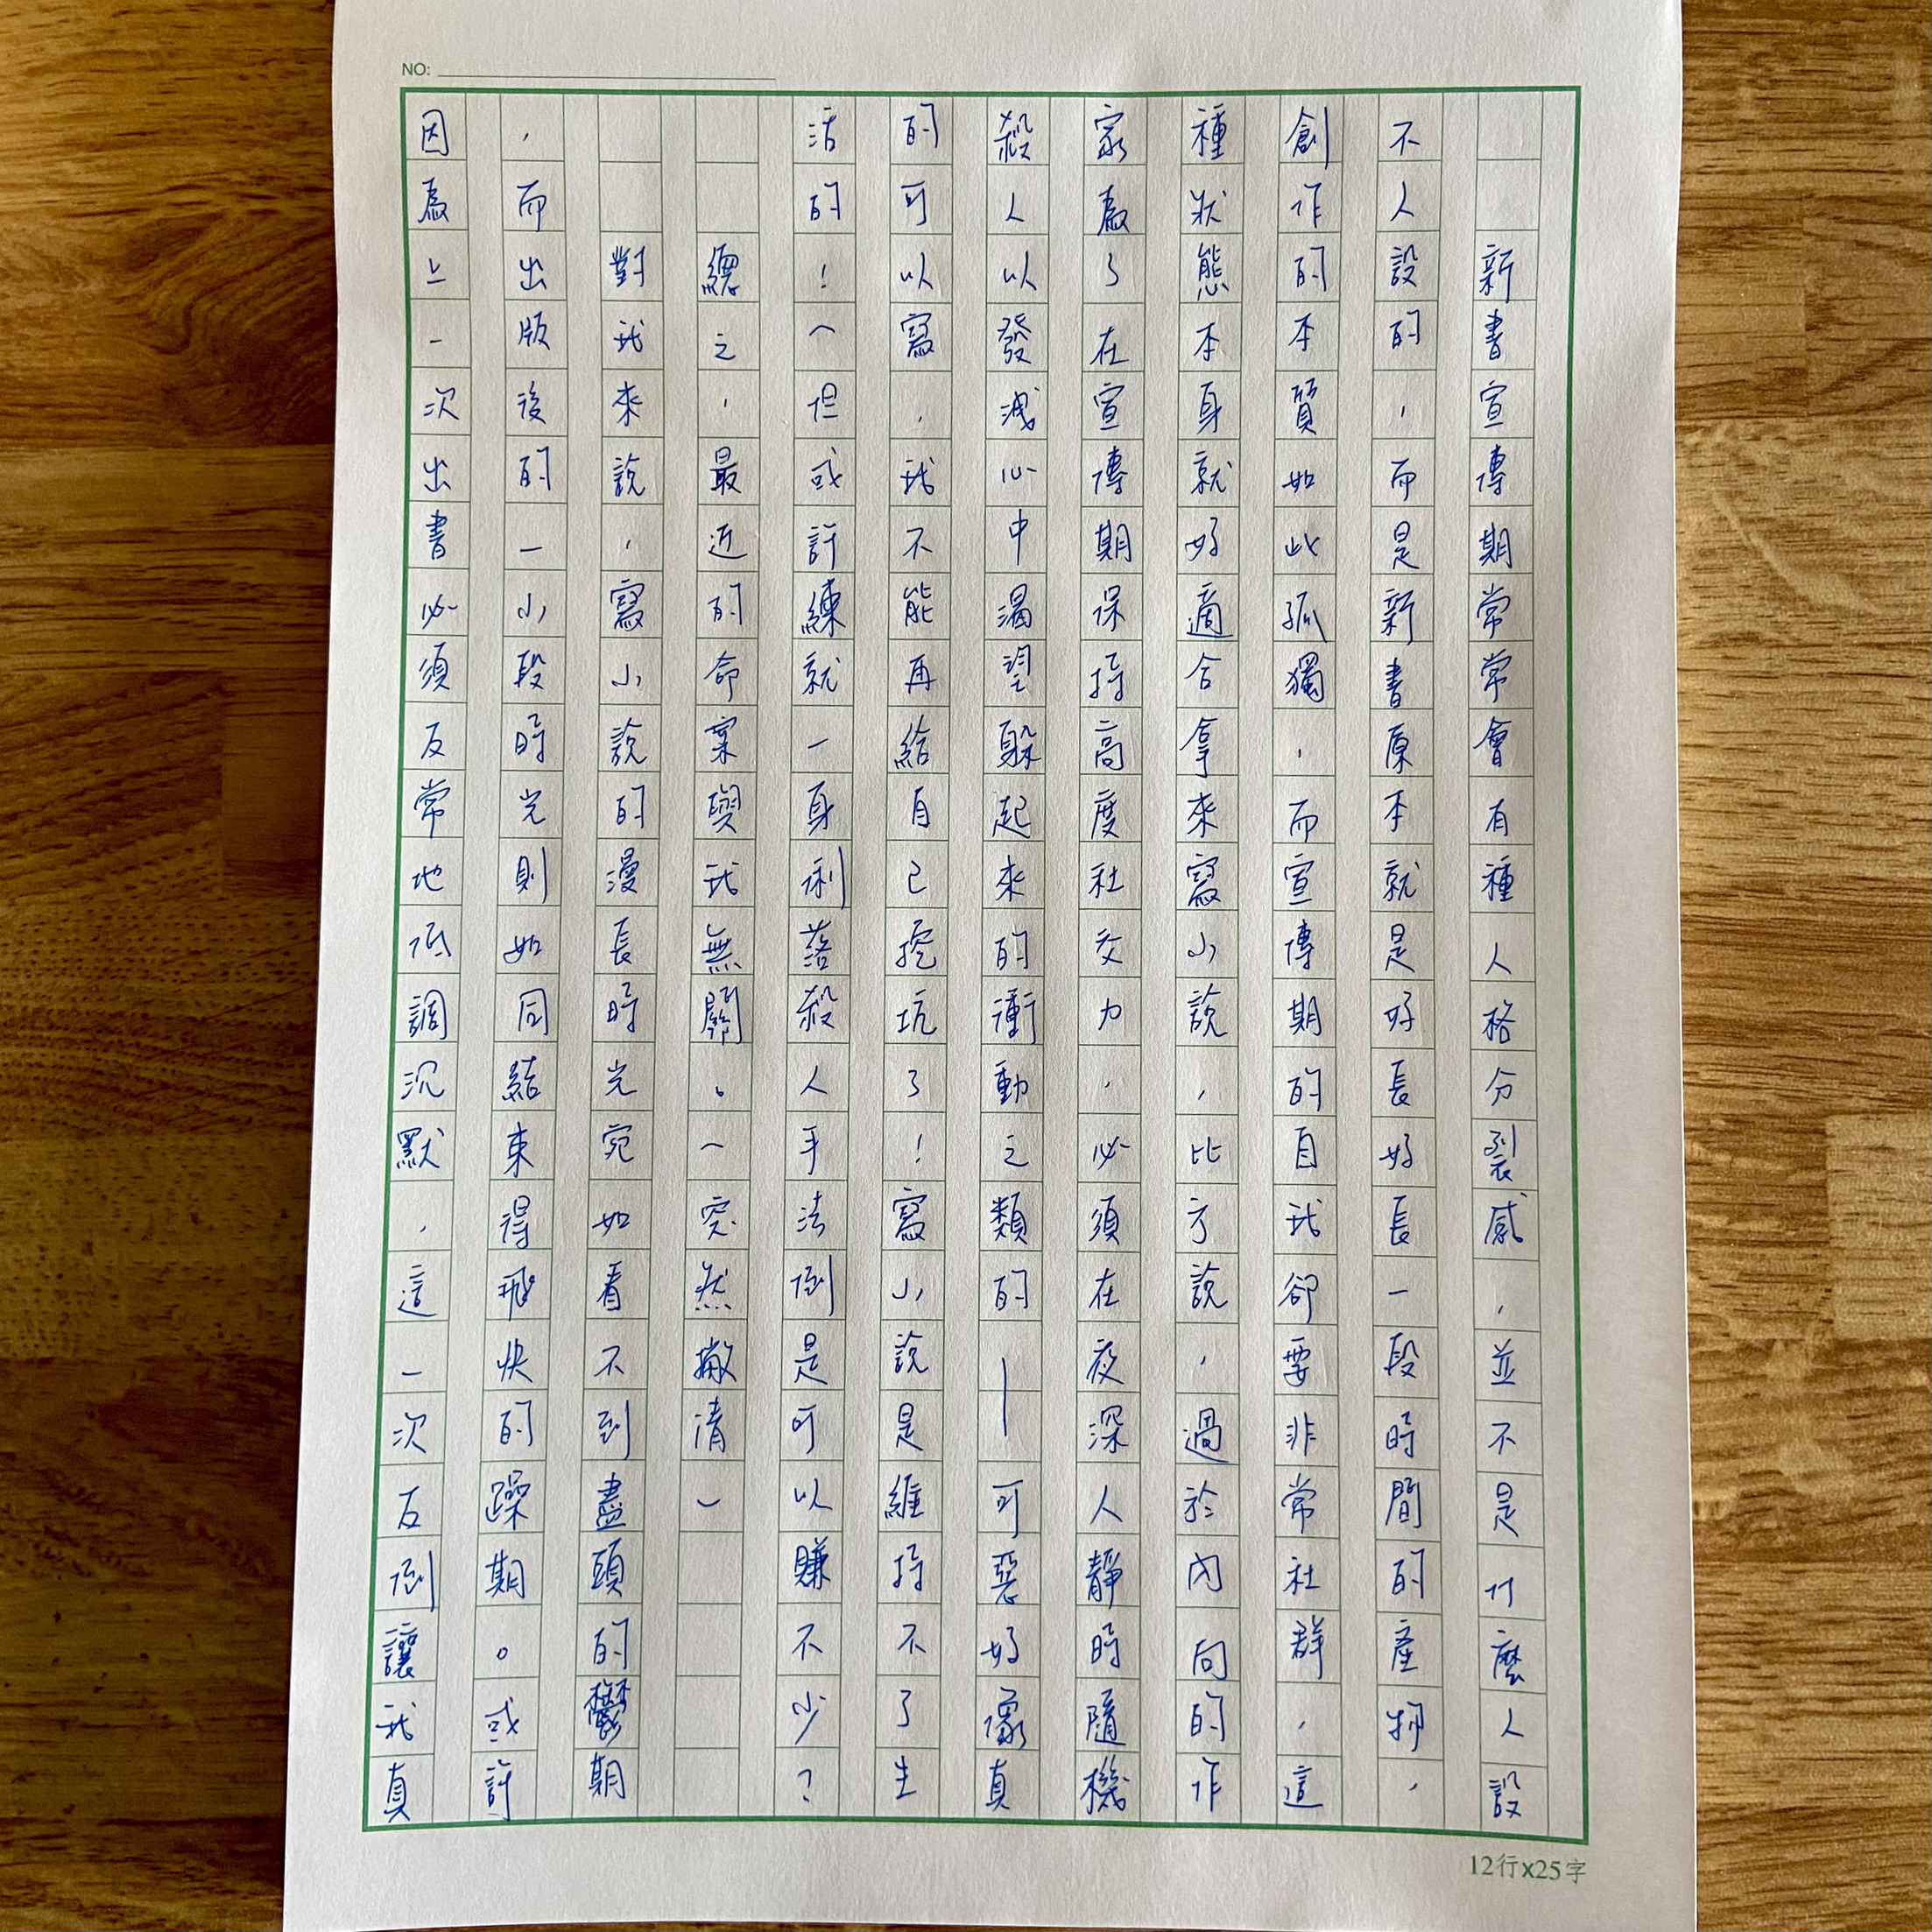 NO:
新書宣傳期常常會有種人格分裂感，並不是什麼人設
不人設的，而是新書原本就是好長好長一段時間的產物，
創作的本質如此孤獨，而宣傳期的自我卻要非常社群，這
種狀態本身就好適合拿來寫小說，比方說，過於內向的作
家為了在宣傳期保持高度社交力，必須在夜深人靜時隨機
殺人以發洩心中渴望躲起來的衝動之類的——可惡好像真
的可以寫，我不能再給自己挖坑了！寫小說是維持不了生
活的！（但或許練就一身俐落殺人手法倒是可以賺不少？
總之，最近的命案與我無關。（突然撇清）
對我來說，寫小說的漫長時光宛如看不到盡頭的鬱期
，而出版後的一小段時光則如同結束得飛快的躁期。或許
因為上一次出書必須反常地低調沉默，這一次反倒讓我真
12行x25字